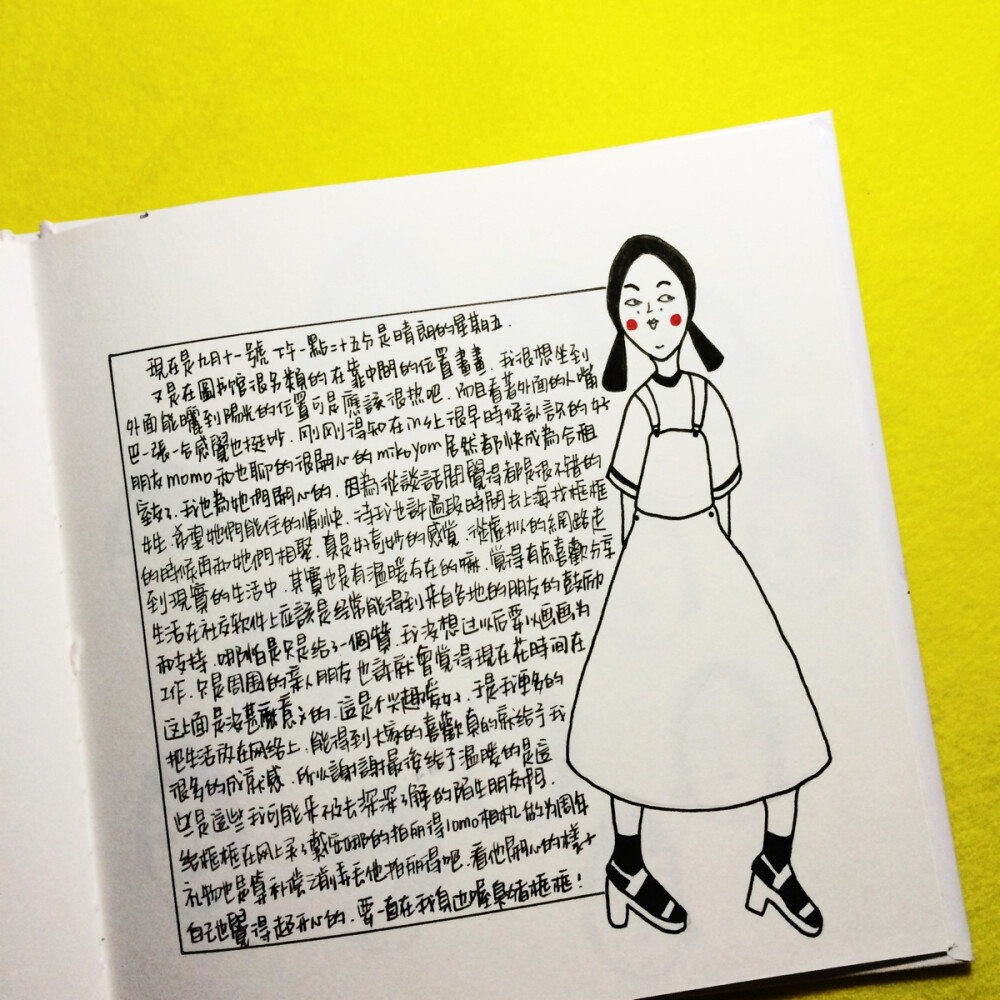 現在是九月十一號下午一點二十五分是晴朗的星期五.
又是在圖書館很另類的在靠中間的位置畫畫.我很想坐到
外面能曬到陽光的位置可是應該很热吧.而且看著外面的人嘴
巴一張一合感覺也挺妙.剛剛得知在in上很早時候認识的好
朋友momo和也聊的很開心的mikoyom居然都快成為合租
室友了.我也為她們開心的.因為從談話間覺得都是很不错的
女生.希望她們能住的愉快.待我也許過段時間去上海找框框
的時候再和她們相聚.真是好奇妙的感觉.從虛拟的網路走
到現實的生活中.其實也是有溫暖存在的嘛.覺得有点喜歡分享
生活在社交软件上应該是經常能得到来自各地的朋友的鼓励
和支持.哪怕是只是给了一個贊.我沒想过以后要以画画为
工作.只是周围的亲人朋友也許就會覺得現在花時間在
这上面是沒甚麽意义的.這是个兴趣爱好.于是我更多的
把生活放在网络上.能得到大家的喜歡真的就给予我
很多的成就感.所以謝謝最後給予溫暖的是這
些是這些我可能来不及去深深了解的陌生朋友們.
给框框在网上买了戴安娜的拍丽得lomo相机做为周年
礼物也是算补偿之前弄丢他拍丽得吧.看他開心的樣子
自己也覺得超开心的.要一直在我身边喔臭猪框框!